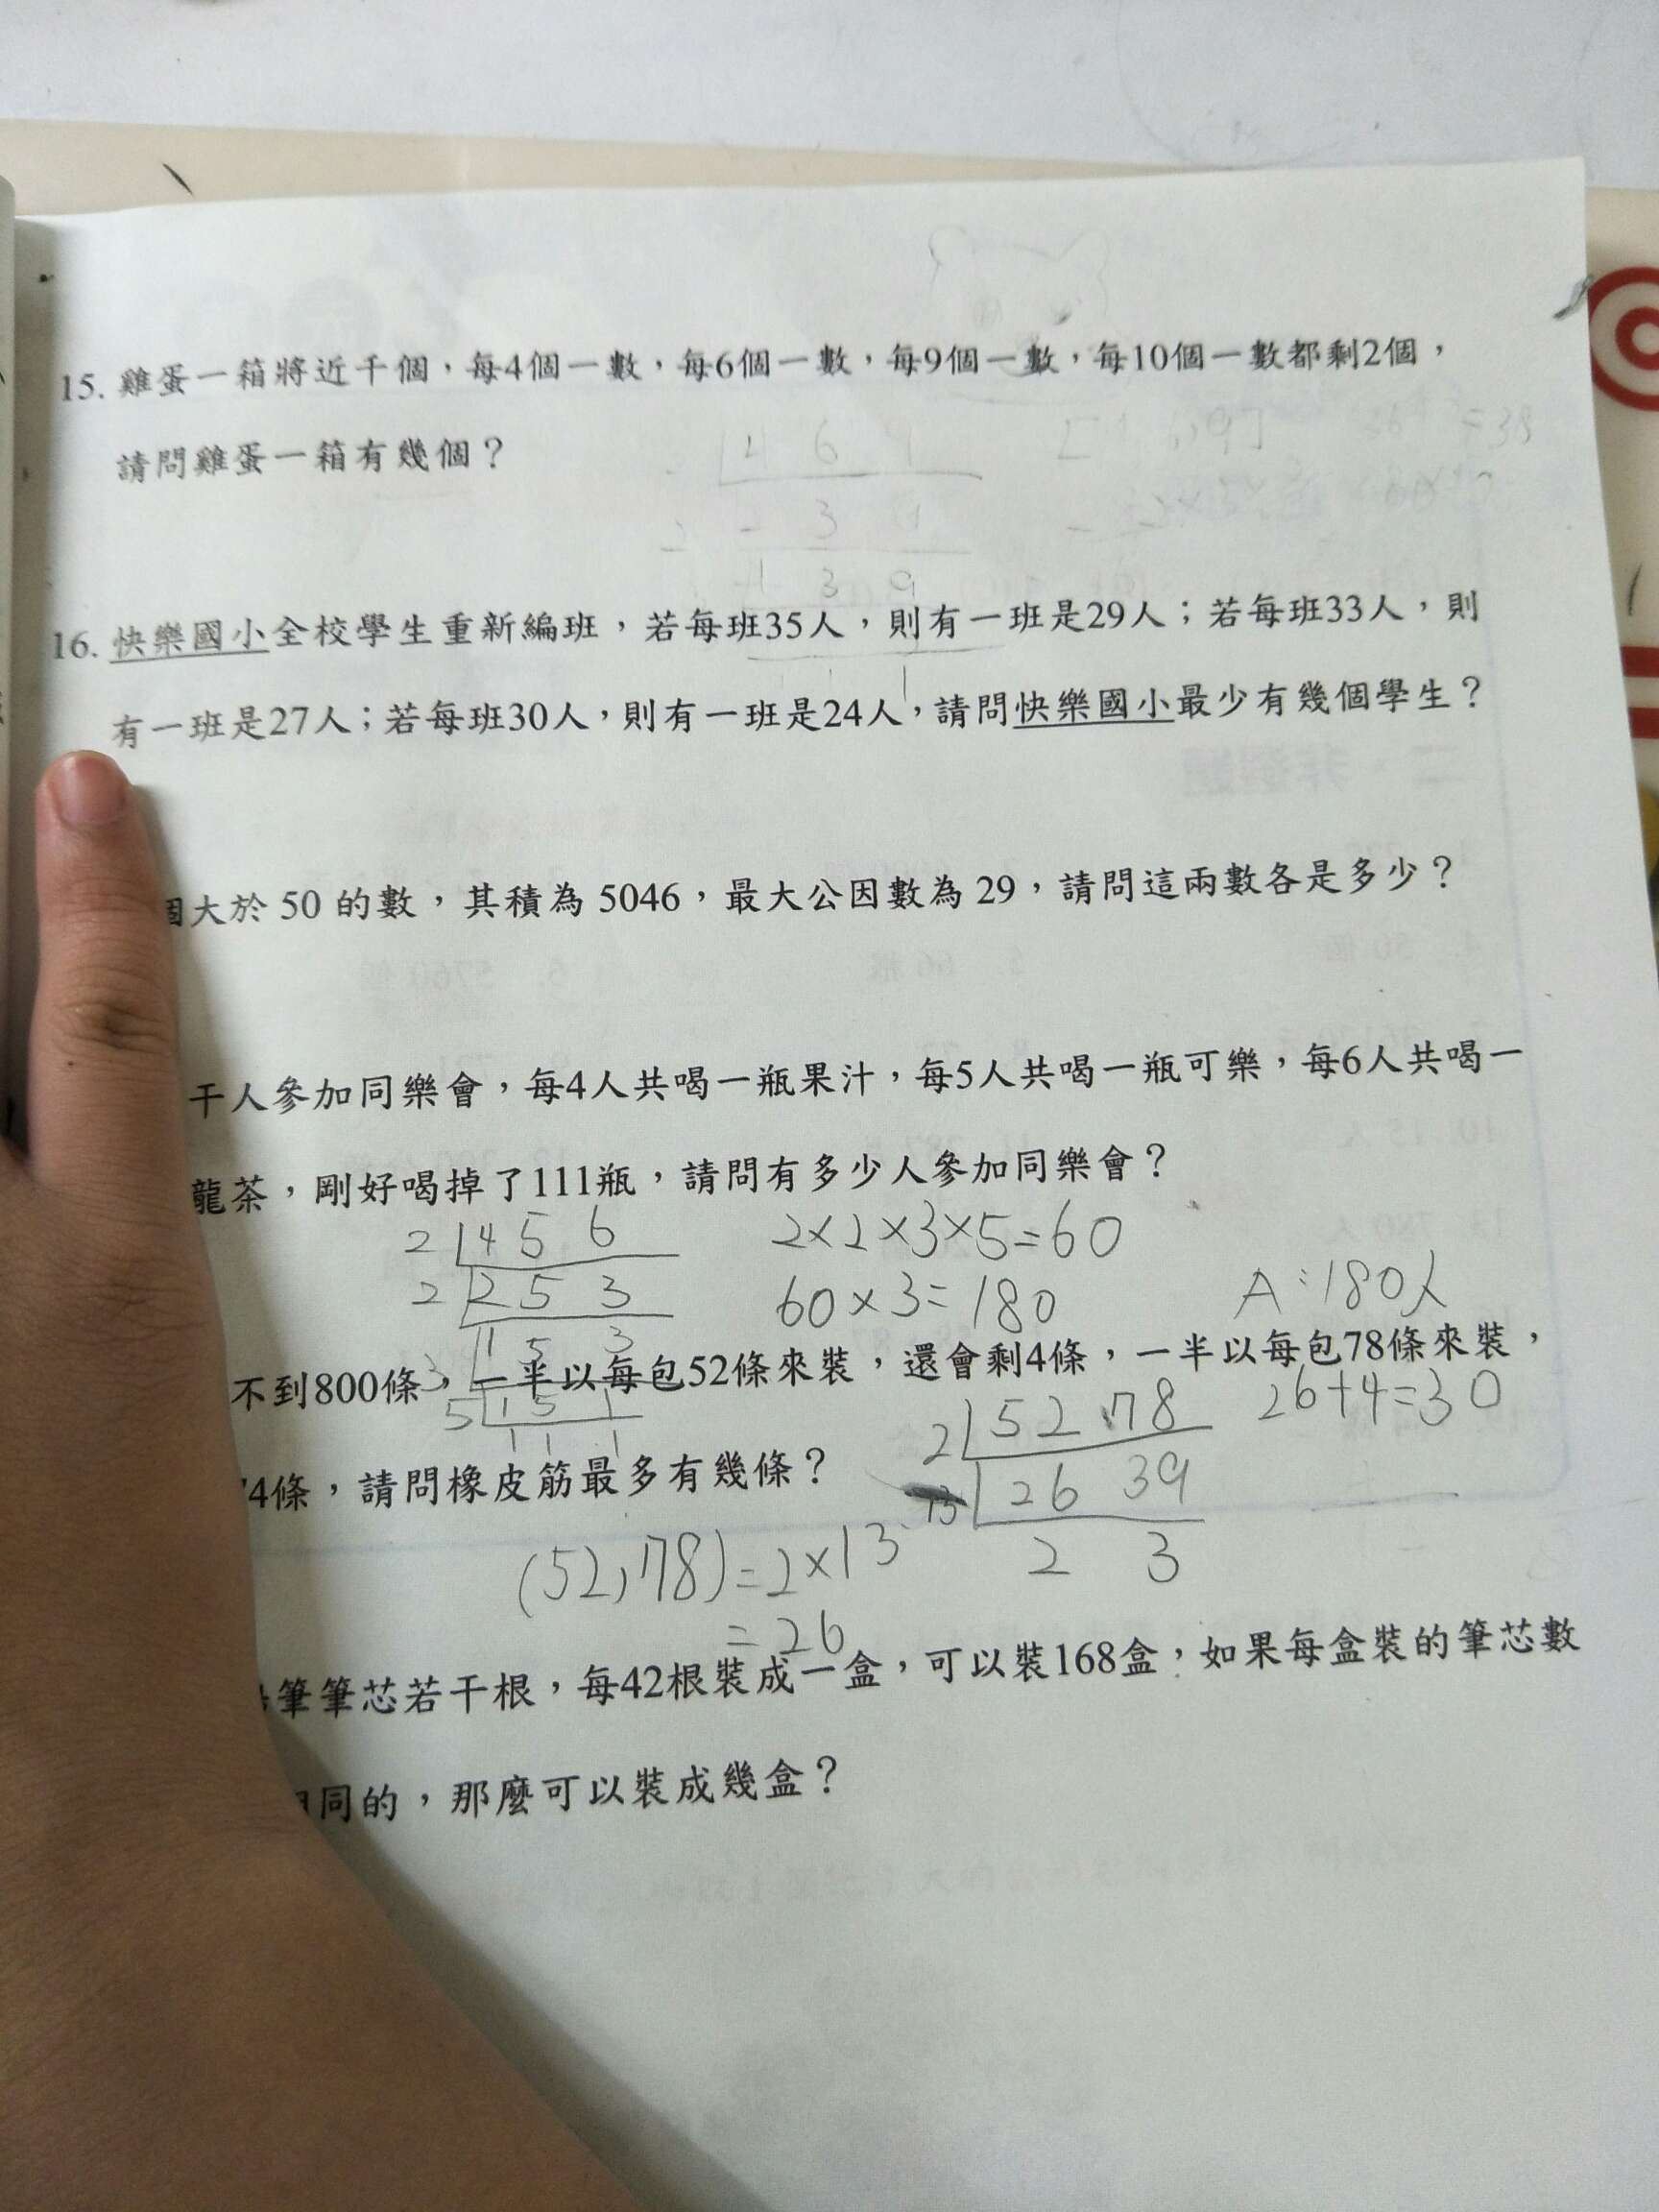 15. 雞蛋一箱將近千個，每4個一數，每6個一數，每9個一數，每10個一數都剩2個，
請問雞蛋一箱有幾個？
16. 快樂國小全校學生重新編班，若每班35人，則有一班是29人；若每班33人，則
有一班是27人；若每班30人，則有一班是24人，請問快樂國小最少有幾個學生？
個大於 50 的數，其積為 5046，最大公因數為 29，請問這兩數各是多少？
干人參加同樂會，每4人共喝一瓶果汁，每5人共喝一瓶可樂，每6人共喝一
龍茶，剛好喝掉了111瓶，請問有多少人參加同樂會？
2 4 5 6 2×2×3×5=60
2 2 5 3 60×3=180 A:180人
1 5 3
不到800條，一半以每包52條來裝，還會剩4條，一半以每包78條來裝，
3
5 1 5 1 2 52 78 26+4=30
1 1 1
74條，請問橡皮筋最多有幾條？
13 26 39
(52,78)=2×13 2 3
=26
筆筆芯若干根，每42根裝成一盒，可以裝168盒，如果每盒裝的筆芯數
同的，那麼可以裝成幾盒？